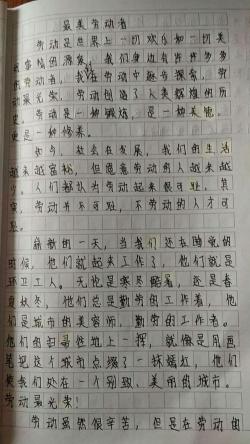 最美劳动者
劳动是世界上一切欢乐和一切美
好事情的源泉。我们身边有许许多多
的劳动者，我在劳动中趣
动最光荣，劳动创造了人类辉煌的历
史。劳动是一种锻炼，是一种美德，
更是一种修养。
如今，社会在发展，我们的生活
越来越富裕，但愿意劳动的人越来越
少。人们都认为劳动起来很可耻，其
实，劳动并不可耻，不劳动的人才可
耻。
新的一天，当我们还在睡觉的
时候，他们就起来工作了，他们就是
环卫工人。无论是寒冬酷暑，还是春
夏秋冬，他们总是勤劳的工作着，他
们是城市的美容师，勤劳的工作者。
他们的扫帚在地上一挥，就像是用画
笔把这个城市点缀了一抹嫣红，他们
使我们处在一个别致、美丽的城市。
劳动最光荣！
劳动虽然很辛苦，但是在劳动的